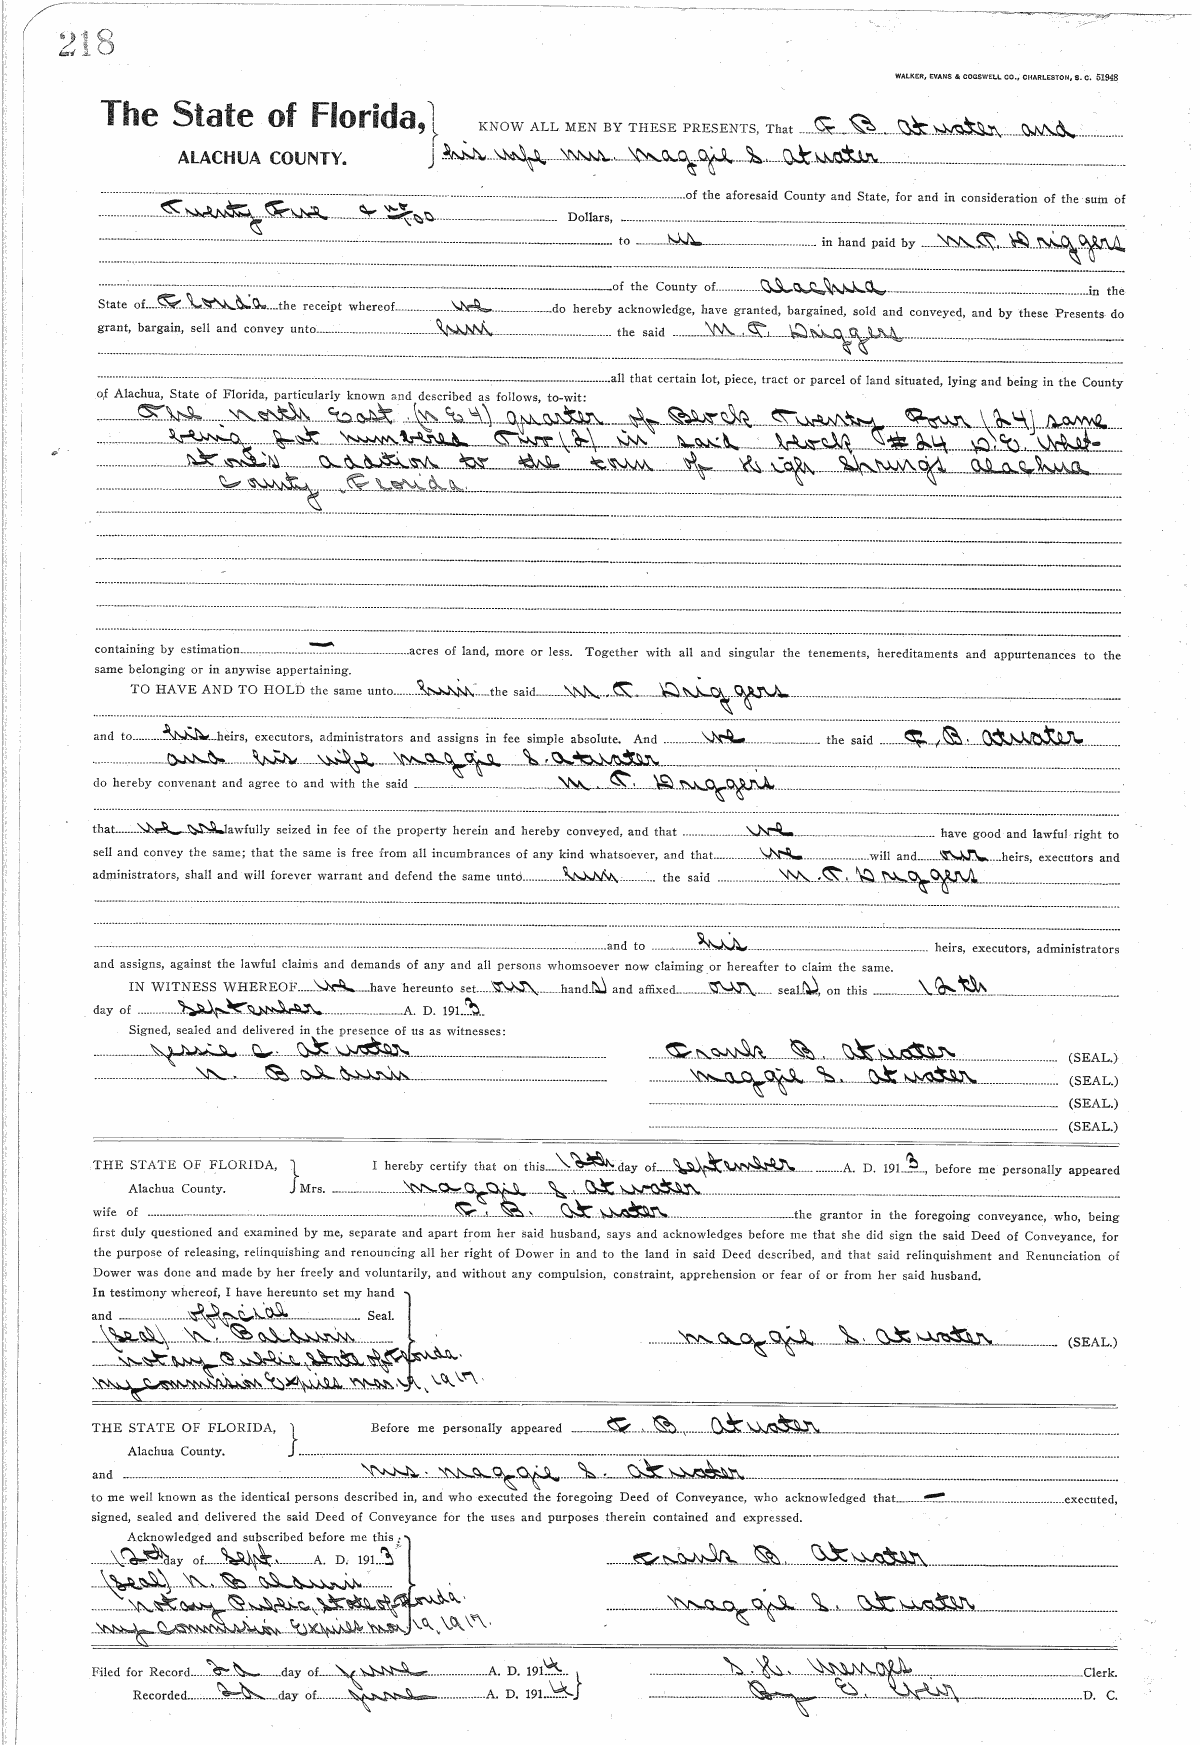 218
WALKER, EVANS & COGSWELL CO., CHARLESTON, S. C. 51948
The State of Florida,
ALACHUA COUNTY.
KNOW ALL MEN BY THESE PRESENTS, That F B. Atwater and
his wife Mrs. Maggie S. Atwater
of the aforesaid County and State, for and in consideration of the sum of
Twenty Five & no/100 Dollars,
to us in hand paid by M. T. Driggers
of the County of Alachua in the
State of Florida the receipt whereof we do hereby acknowledge, have granted, bargained, sold and conveyed, and by these Presents do
grant, bargain, sell and convey unto him the said M. T. Driggers
all that certain lot, piece, tract or parcel of land situated, lying and being in the County
of Alachua, State of Florida, particularly known and described as follows, to-wit:
The North East (N E 4) quarter of Block Twenty Four (24) same
being Lot numbered Two (2) in said block #24 D. E. Whet-
stone's addition to the town of High Springs Alachua
County, Florida.
containing by estimation — acres of land, more or less. Together with all and singular the tenements, hereditaments and appurtenances to the
same belonging or in anywise appertaining.
TO HAVE AND TO HOLD the same unto him the said M. T. Driggers
and to his heirs, executors, administrators and assigns in fee simple absolute. And we the said F. B. Atwater
and his wife Maggie S. Atwater
do hereby convenant and agree to and with the said M. T. Driggers
that we are lawfully seized in fee of the property herein and hereby conveyed, and that we have good and lawful right to
sell and convey the same; that the same is free from all incumbrances of any kind whatsoever, and that we will and our heirs, executors and
administrators, shall and will forever warrant and defend the same unto him the said M. T. Driggers
and to his heirs, executors, administrators
and assigns, against the lawful claims and demands of any and all persons whomsoever now claiming or hereafter to claim the same.
IN WITNESS WHEREOF we have hereunto set our hand s and affixed our seal s, on this 12th
day of September A. D. 191 3.
Signed, sealed and delivered in the presence of us as witnesses:
Jessie C. Atwater Frank B. Atwater (SEAL.)
N. Baldwin Maggie S. Atwater (SEAL.)
(SEAL.)
(SEAL.)
THE STATE OF FLORIDA, I hereby certify that on this 12th day of September A. D. 191 3, before me personally appeared
Alachua County. Mrs. Maggie S. Atwater
wife of F. B. Atwater the grantor in the foregoing conveyance, who, being
first duly questioned and examined by me, separate and apart from her said husband, says and acknowledges before me that she did sign the said Deed of Conveyance, for
the purpose of releasing, relinquishing and renouncing all her right of Dower in and to the land in said Deed described, and that said relinquishment and Renunciation of
Dower was done and made by her freely and voluntarily, and without any compulsion, constraint, apprehension or fear of or from her said husband.
In testimony whereof, I have hereunto set my hand
and official Seal.
(Seal) N. Baldwin Maggie S. Atwater (SEAL.)
Notary Public, State of Florida.
My commission Expires Mar. 19, 1917.
THE STATE OF FLORIDA, Before me personally appeared F. B. Atwater
Alachua County.
and Mrs. Maggie S. Atwater
to me well known as the identical persons described in, and who executed the foregoing Deed of Conveyance, who acknowledged that — executed,
signed, sealed and delivered the said Deed of Conveyance for the uses and purposes therein contained and expressed.
Acknowledged and subscribed before me this
12th day of Sept. A. D. 191 3 Frank B. Atwater
(Seal) N. Baldwin
Notary Public, State of Florida. Maggie S. Atwater
My Commission Expires Mar 19, 1917.
Filed for Record 2d day of June A. D. 191 4 S. H. Wienges Clerk.
Recorded 2d day of June A. D. 191 4 By E. Weir D. C.